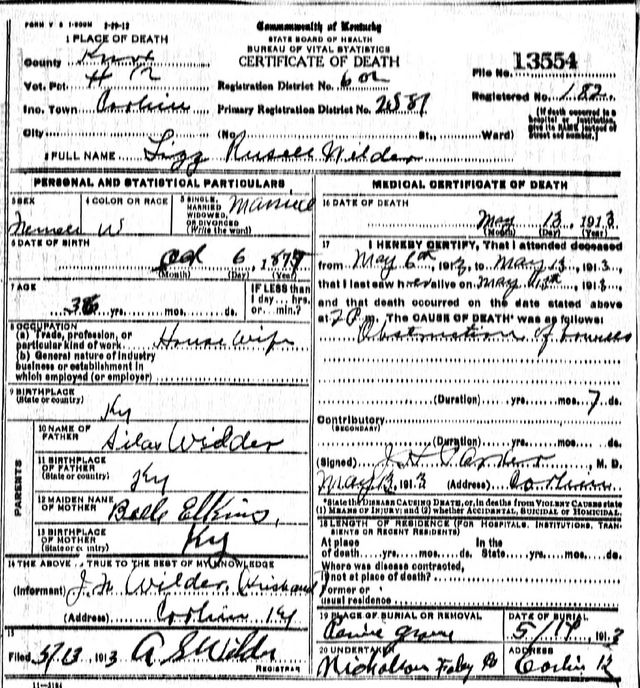 FORM V S 1-200M 2-20-12
Commonwealth of Kentucky
STATE BOARD OF HEALTH
BUREAU OF VITAL STATISTICS
CERTIFICATE OF DEATH
1 PLACE OF DEATH
County Knox
Vot. Pct
Inc. Town Corbin
City
(No. St., Ward)
Registration District No.
Primary Registration District No.
File No. 13554
Registered No. 182
(If death occurred in a hospital or institution, give its NAME instead of street and number.)
2 FULL NAME Lizz Russell Wilder
PERSONAL AND STATISTICAL PARTICULARS
3 SEX
4 COLOR OR RACE W
5 SINGLE, MARRIED, WIDOWED, OR DIVORCED (Write the word) Married
6 DATE OF BIRTH
6
(Month) (Day) (Year)
7 AGE
yrs. mos. ds.
IF LESS than 1 day hrs. or min.?
8 OCCUPATION
(a) Trade, profession, or particular kind of work House Wife
(b) General nature of industry business or establishment in which employed (or employer)
9 BIRTHPLACE
(State or country)
Ky
PARENTS
10 NAME OF FATHER
Silas Wilder
11 BIRTHPLACE OF FATHER
(State or country)
Ky
12 MAIDEN NAME OF MOTHER
Belle Elkins,
13 BIRTHPLACE OF MOTHER
(State or country)
Ky
14 THE ABOVE IS TRUE TO THE BEST OF MY KNOWLEDGE
(Informant) J. M. Wilder, Husband
(Address) Corbin Ky
15
Filed 5/13 1913 A S Wilder
REGISTRAR
11-3184
MEDICAL CERTIFICATE OF DEATH
16 DATE OF DEATH
May 13, 1913
(Month) (Day) (Year)
17 I HEREBY CERTIFY, That I attended deceased
from May 6th, 1913, to May 13, 1913,
that I last saw her alive on May 1913,
and that death occurred on the date stated above
at 2 P m. The CAUSE OF DEATH* was as follows:
Obstruction of bowells
(Duration) yrs. mos. 7 ds.
Contributory
(SECONDARY)
(Duration) yrs. mos. ds.
(Signed) J H Parker, M. D.
May 13, 1913 (Address) Corbin
*State the DISEASE CAUSING DEATH, or, in deaths from VIOLENT CAUSES state
(1) MEANS OF INJURY; and (2) whether ACCIDENTAL, SUICIDAL or HOMICIDAL.
18 LENGTH OF RESIDENCE (FOR HOSPITALS, INSTITUTIONS, TRANSIENTS OR RECENT RESIDENTS)
At place of death yrs. mos. ds.
In the State yrs. mos. ds.
Where was disease contracted,
if not at place of death?
Former or
usual residence
19 PLACE OF BURIAL OR REMOVAL
DATE OF BURIAL
5/14, 1913
20 UNDERTAKER
ADDRESS
Corbin